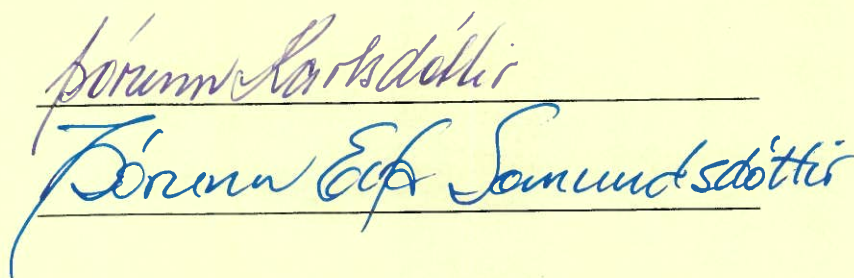 Þórunn Karlsdóttir
Þórunn Sæmundsdóttir